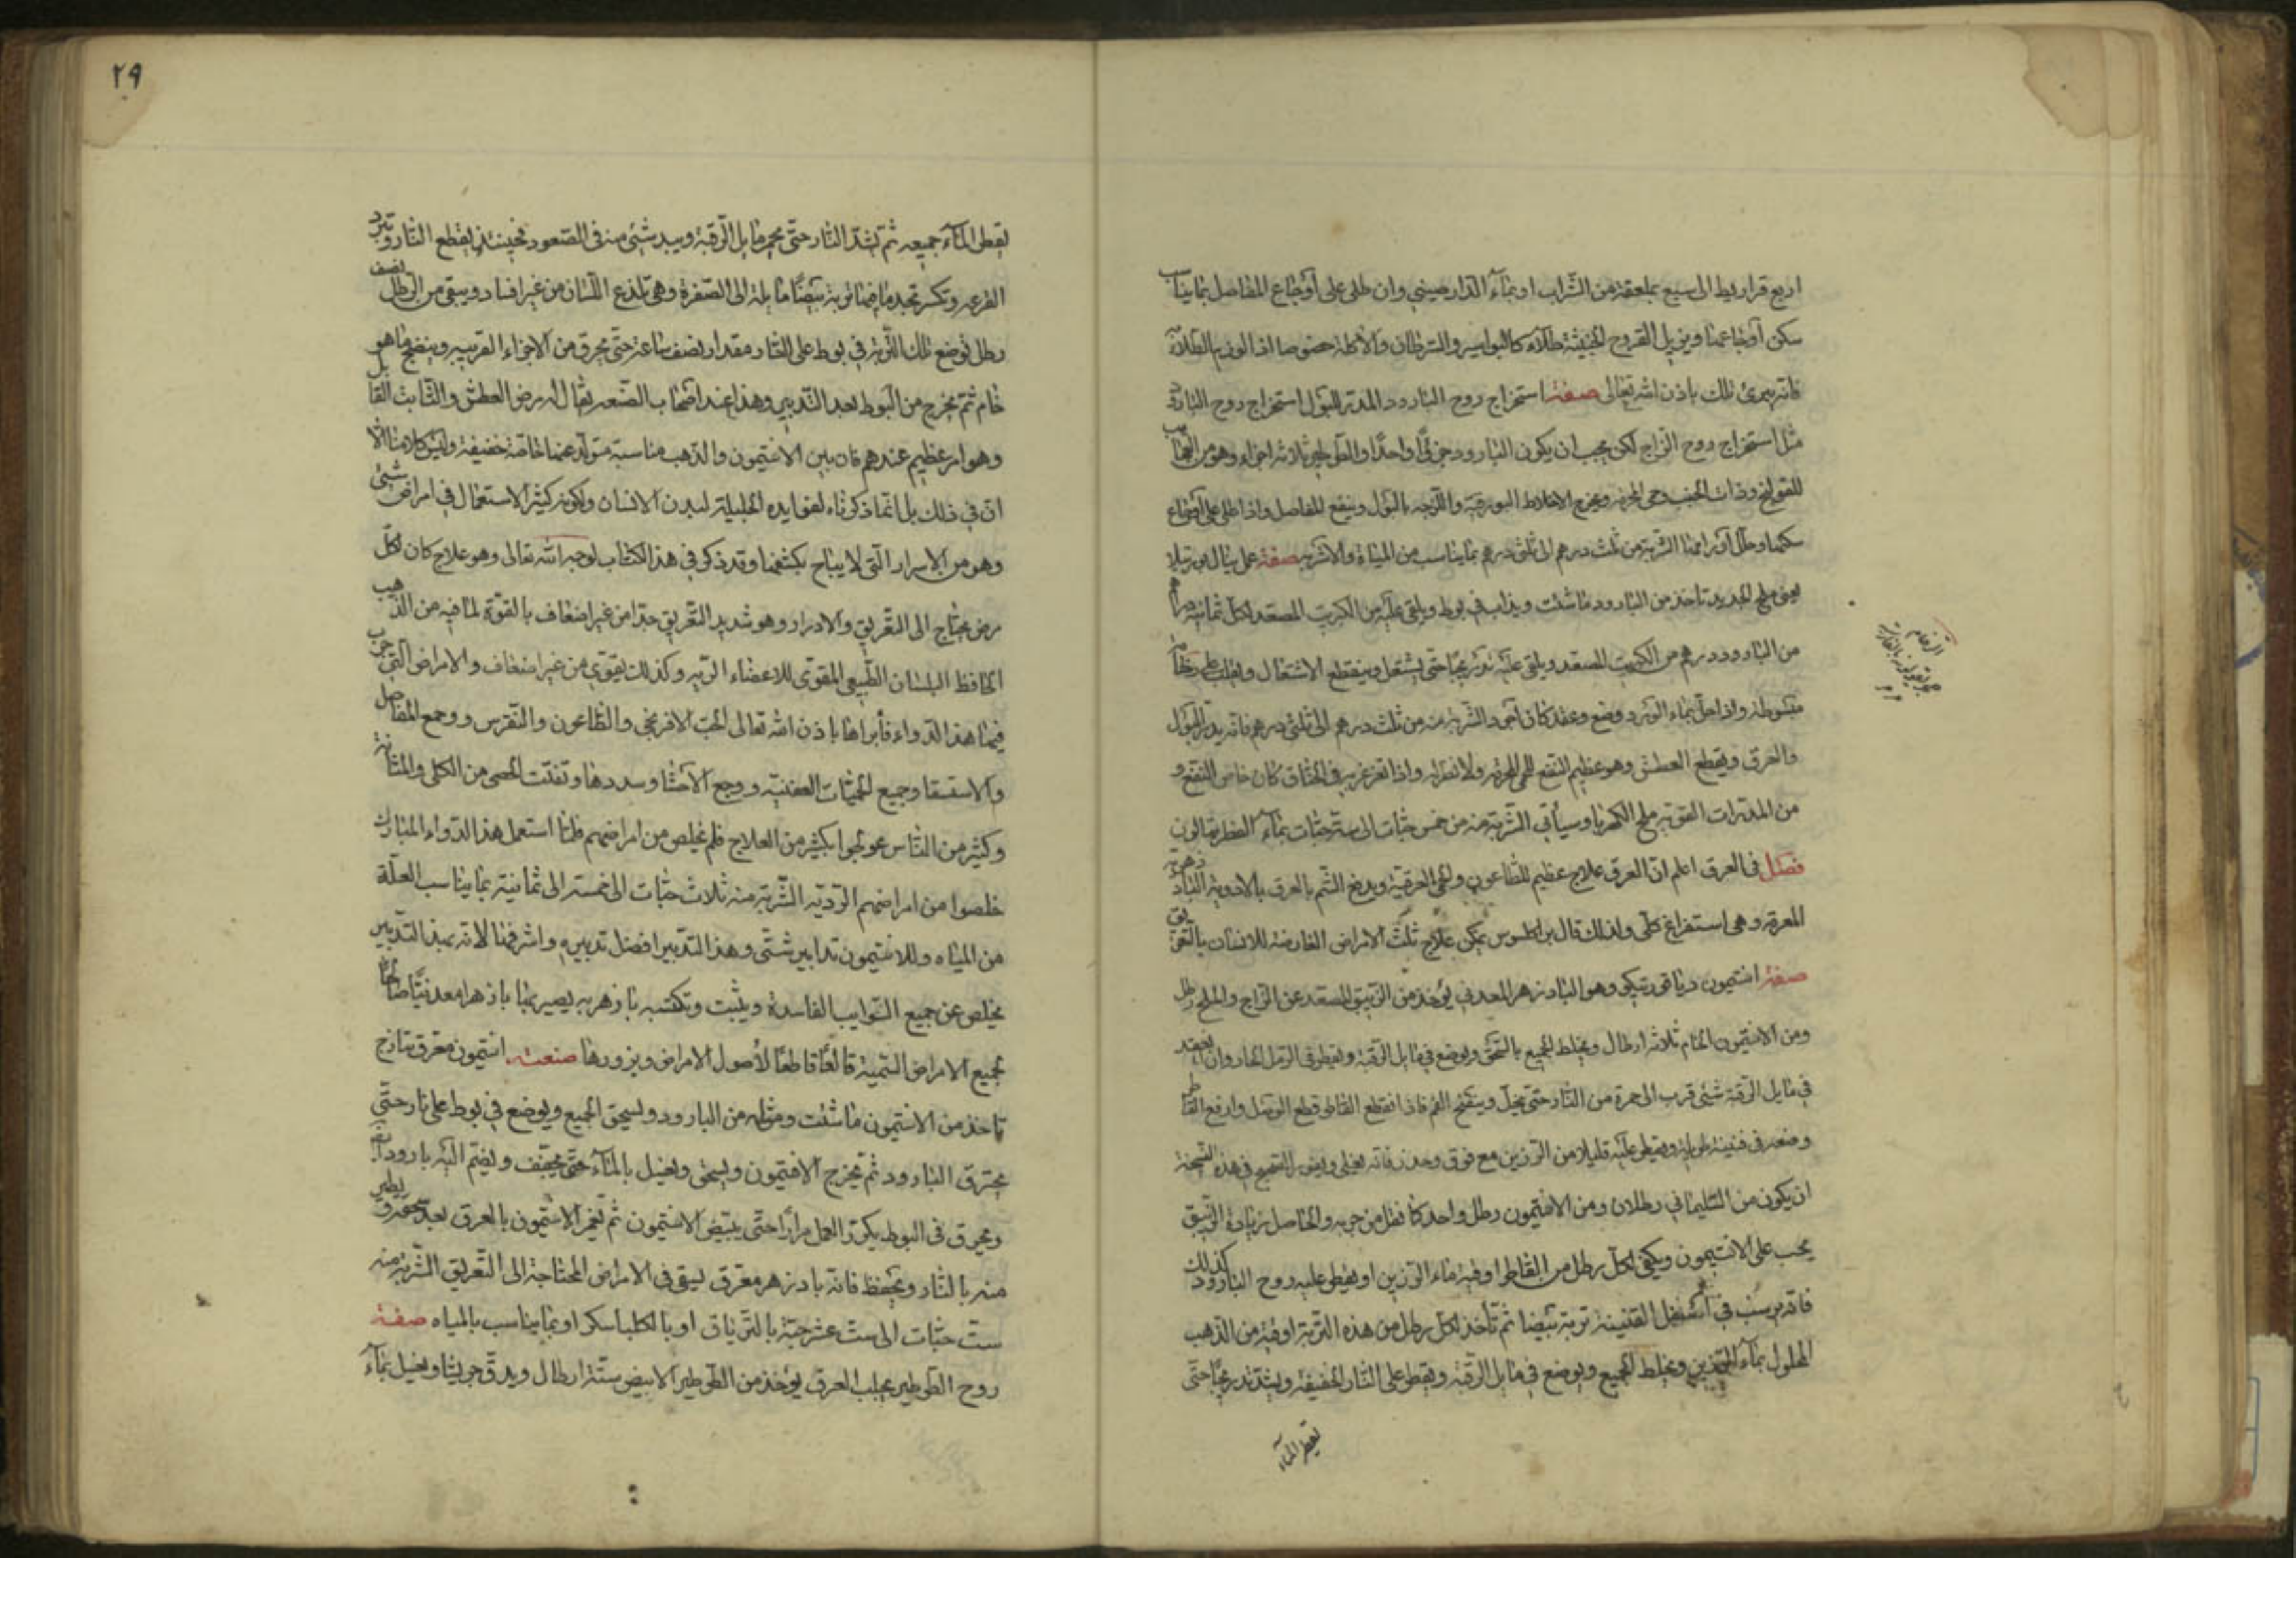 اربع قراريط الى سبع بملعقة من الشراب او بماء الدارصيني وان طلي على اوجاع المفاصل بما يناسب
سكن اوجاعها ويزيل القروح الخبيثة طلاء كالبواسير والسرطان والاكلة خصوصا اذا لوزم بالطلاء
فانه يبرئ ذلك باذن الله تعالى صفة استخراج روح البارود المدر للبول استخراج روح البارود
مثل استخراج روح الزاج لكن يجب ان يكون البارود جزءا واحدا والطين ثلاثة اجزاء وهو من العجايب
للقولنج وذات الجنب وحمى المحرقة ويخرج الاخلاط البورقية واللزجة بالبول وينفع للمفاصل واذا طلي على الاوجاع
سكنها وحلل اورامها الشربة من ثلث درهم الى ثلثي درهم بما يناسب من المياه والاشربة صفة عمل سال
يعني ملح الحديد تاخذ من البارود ما شئت ويذاب في بوط ويلقى عليه من الكبريت المصعد لكل ثمانية دراهم
من البارود درهم من الكبريت المصعد ويلقى عليه تدريجا حتى يشتعل وينقطع الاشتعال
واذا حل بماء الورد وضع وعقد كان اجود الشربة منه من ثلث درهم الى ثلثي درهم فانه يدر البول
والعرق ويقطع العطش وهو عظيم النفع للحمى المحرقة ولا نظير له واذا تغرغر به في الخناق كان خاص النفع و
من المدرات القوية ملح الكهربا وسيأتي الشربة منه من خمس حبات الى ستة حبات بماء
فصل في العرق اعلم ان العرق علاج عظيم للطاعون ولحمى العرقية ويدفع السم بالعرق بالادوية البادزهرية
المعرقة وهي استفراغ كلي ولذلك قال براكلسوس يمكن علاج ثلث الامراض العارضة للانسان بالتعريق
صفة انتيمون ديافورتيكو وهو البادزهر المعدني يؤخذ من الزيبق المصعد عن الزاج والملح رطل
ومن الانتيمون الخام ثلاثة ارطال ويخلط الجميع بالسحق ويوضع في مايل الرقبة ويقطر في الرمل الحار وان انعقد
في مايل الرقبة شئ قرب الى جمرة من النار حتى يحل وينفتح الفم فاذا انقطع القاطر قطع الوصل وارفع القاطر
وضعه في قنينة طويلة ويقطر عليه قليلا من الرزين مع فوق وحذر فانه يغلي
ان يكون من السليماني رطلان ومن الانتيمون رطل واحد كما نقل من جربه والحاصل زيادة الزيبق
يجب على الانتيمون ويكفي لكل رطل من القاطر اوقية ماء الرزين او يقطر عليه روح البارود كذلك
فانه يرسب في اسفل القنينة تربة بيضا ثم تأخذ لكل رطل من هذه التربة اوقية من الذهب
المحلول بماء الرزين ويخلط الجميع ويوضع في مايل الرقبة ويقطر على النار الخفيفة ويشد تدريجا حتى
يقطر الماء
٢٩
يقطر الماء جميعه ثم يشد النار حتى يحمر مايل الرقبة ويبدو شئ منه في الصعود فحينئذ يقطع النار وتبرد
القرعه وتكسر تجد ما فيها تربة بيضا مايلة الى الصفرة وهي تلذع اللسان من غير افساد ويبقى من الرطل نصف
رطل توضع تلك التربة في بوط على النار مقدار نصف ساعة حتى يحرق من الاجزاء الغريبه وينضج ما هو
خام ثم يخرج من البوط بعد التدبير وهذا عند اصحاب الصنعه يقال له مرض العطش والثابت القابل
وهو امر عظيم عندهم فان بين الانتيمون والذهب مناسبة متولد عنها خاصة خفيفة وليس كلامنا الآن
ان في ذلك بل انما ذكرناه لفوايده الجليلة لبدن الانسان ولكونه كثير الاستعمال في امراض شتى
وهو من الاسرار التي لا يباح بكشفها وقد ذكر في هذا الكتاب لوجه الله تعالى وهو علاج كان لكل
مرض يحتاج الى التعريق والادرار وهو شديد التعريق جدا من غير اضعاف بالقوة لما فيه من الذهب
الحافظ البلسان الطبيعي المقوي للاعضاء الرييه وكذلك يقوي من غير اضعاف والامراض التي جرب
فيها هذا الدواء فأبراها باذن الله تعالى الحب الافرنجي والطاعون والنقرس ووجع المفاصل
والاستسقا وجميع الحميات العفنيه ووجع الاحشا وسددها وتفتت الحصى من الكلى والمثانة
وكثير من الناس عولجوا بكثير من العلاج فلم يخلص من امراضهم فلما استعمل هذا الدواء المبارك
خلصوا من امراضهم الرديه الشربة منه ثلاث حبات الى خمسة الى ثمانية بما يناسب العلة
من المياه وللانتيمون تدابير شتى وهذا التدبير افضل تدبيره واشرفها لانه بهذا التدبير
يخلص عن جميع الشوايب الفاسدة ويثبت وتكتسبه بازهريه يصير بها بازهرا معدنيا صالحا
لجميع الامراض السمية قالعا قاطعا لأصول الامراض وبزورها صنعته انتيمون معرق ساذج
تاخذ من الانتيمون ما شئت ومثله من البارود ويسحق الجميع ويوضع في بوط على نار حتى
يحترق البارود ثم يخرج الانتيمون ويسحق ويغسل بالماء حتى يجفف ويضم اليه بارود ايضا
ويحرق في البوط يكرر العمل مرارا حتى يبيض الانتيمون ثم تغمر الانتيمون بالعرق بعد سحقه ويطير
منه بالنار ويحفظ فانه بادزهر معرق يسقى في الامراض المحتاجة الى التعريق الشربة منه
ست حبات الى ست عشر حبة بالترياق او بالكلباسكر او بما يناسب بالمياه صفة
روح الطرطير يجلب العرق يؤخذ من الطرطير الابيض ستة ارطال ويدق جريشا ويغسل بماء